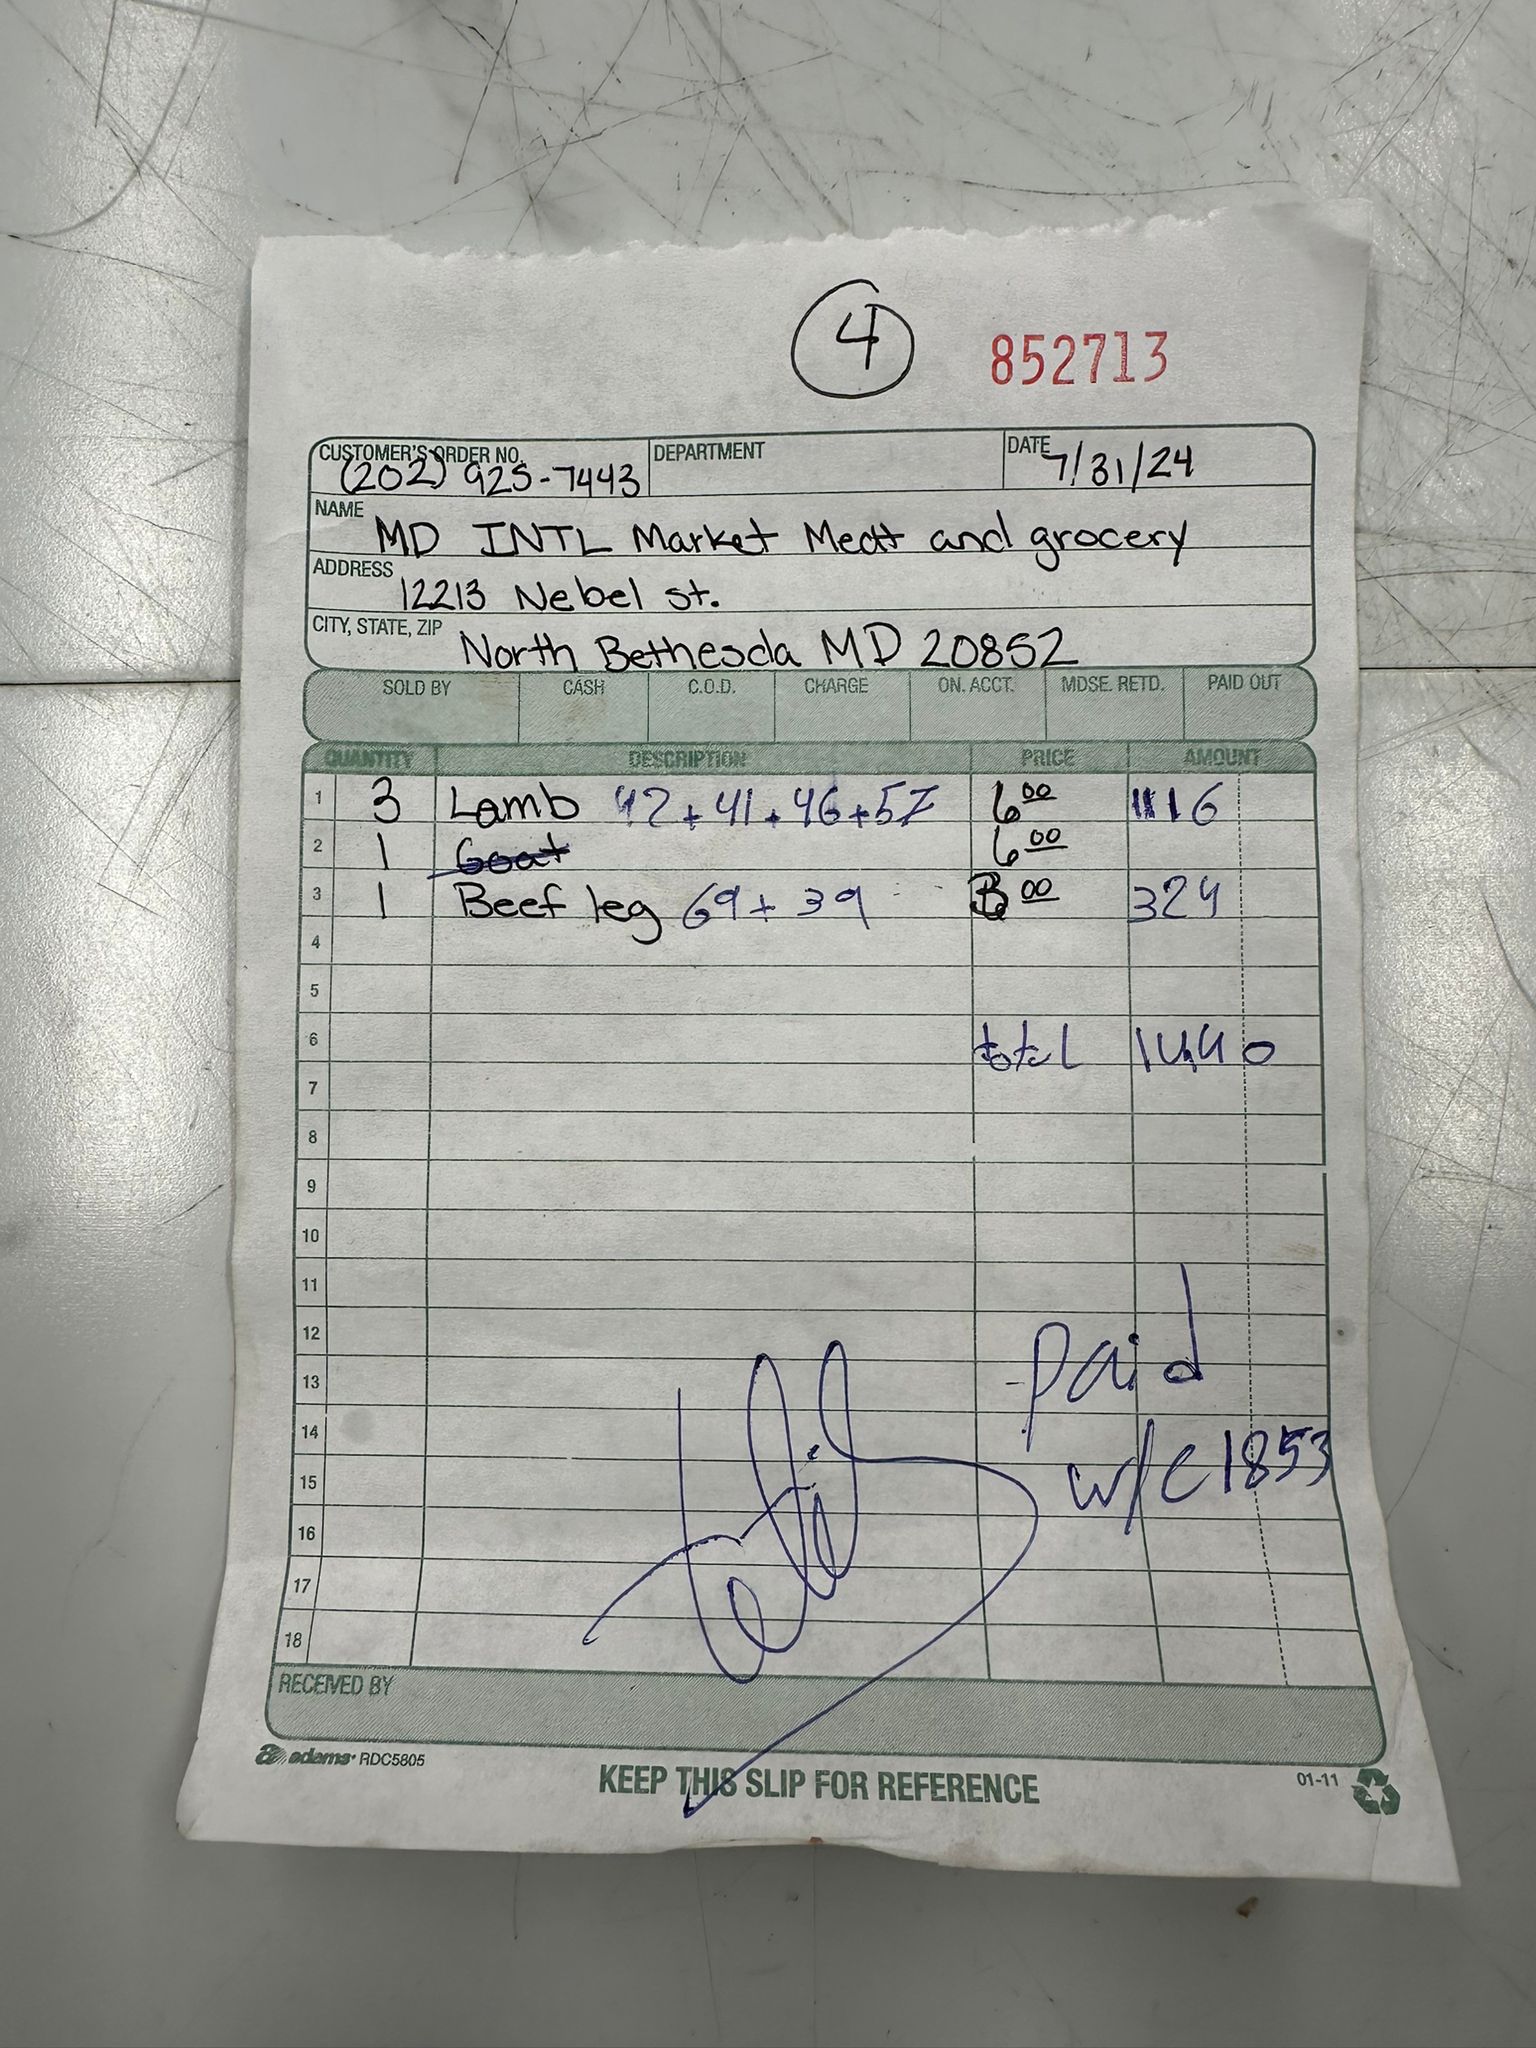 4
852713
CUSTOMER'S ORDER NO. (202) 925-7443 DEPARTMENT DATE 7/31/24
NAME MD INTL Market Meat and grocery
ADDRESS 12213 Nebel st.
CITY, STATE, ZIP North Bethesda MD 20852
SOLD BY CASH C.O.D. CHARGE ON. ACCT. MDSE. RETD. PAID OUT
QUANTITY DESCRIPTION PRICE AMOUNT
1 3 Lamb 42 + 41 + 46 + 57 6 00 1116
2 1 Goat 6 00
3 1 Beef leg 69 + 39 3 00 324
4
5
6 total 1440
7
8
9
10
11
12
13 paid
14
15 w/c 1853
16
17
18
RECEIVED BY
adams RDC5805
KEEP THIS SLIP FOR REFERENCE
01-11